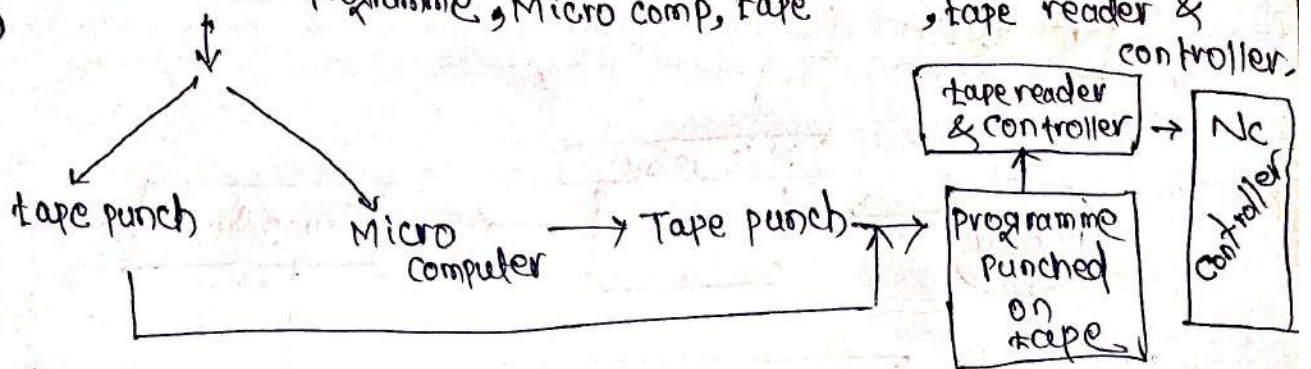 programme, Micro comp, tape , tape reader &
controller.
tape reader
& controller
Nc
controller
tape punch
Micro
computer
Tape punch
programme
punched
on
tape